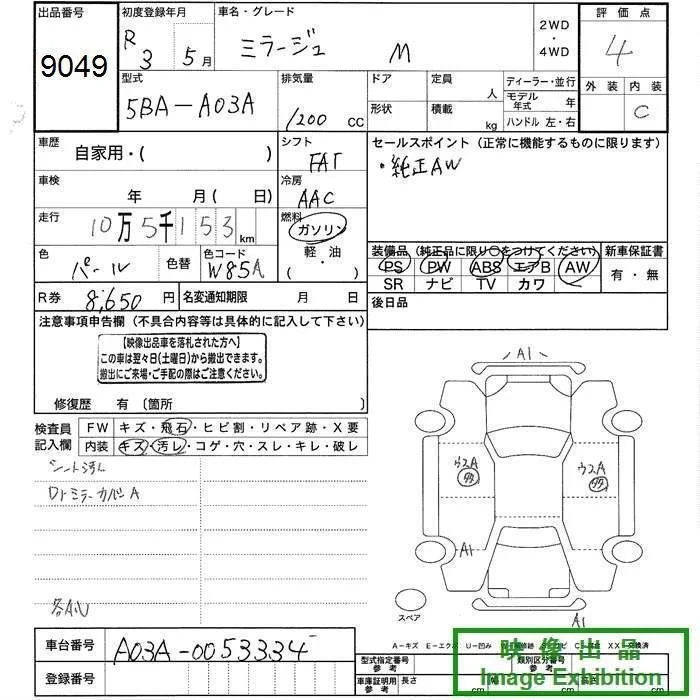 出品番号 初度登録年月 車名・グレード 2WD ・ 4WD 評価点
9049 R 3 5月 ミラージュ M 4
型式 排気量 ドア 定員 人 ディーラー・並行 外装 内装
5BA-A03A 1200 cc 形状 積載 kg モデル年式 年 C
ハンドル 左・右
車歴 自家用・( ) シフト FAT セールスポイント(正常に機能するものに限ります)
・純正AW
車検 年 月(日) 冷房 AAC
走行 10万5千153km 燃料 ガソリン 軽・油 ( )
色 パール 色替 色コード W85A
装備品(純正品に限り○をつけてください) 新車保証書
PS PW ABS エアB AW 有・無
SR ナビ TV カワ
R券 8,650円 名変通知期限 月 日 後日品
注意事項申告欄(不具合内容等は具体的に記入して下さい)
【映像出品車を落札された方へ】
この車は翌々日(土曜日)から搬出できます。
搬出にご来場・ご手配の際はご注意ください。
修復歴 有〔箇所 〕
検査員記入欄 FW キズ・飛石・ヒビ割・リペア跡・X要
内装 キズ・汚レ・コゲ・穴・スレ・キレ・破レ
Drミラーカバー A
各AU
A1
ウスA ウスA
A1
スペア
A1
車台番号 A03A-0053334
登録番号
A-キズ E-エクボ U-凹み
型式指定番号 参考 類別区分番号 参考
車庫証明用 参考 長さ cm cm cm
映像出品
Image Exhibition